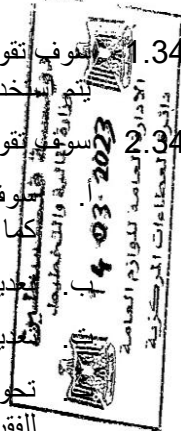 1.34 سوف تقو
يتم استخد
2.34 سوف تقو
سوف
كما
ب. تعدي
تعدي
تحو
الفقر
المالية والتخطيط
14-03-2023
الادارة العامة للوازم العامة
دائرة العطاءات المركزية